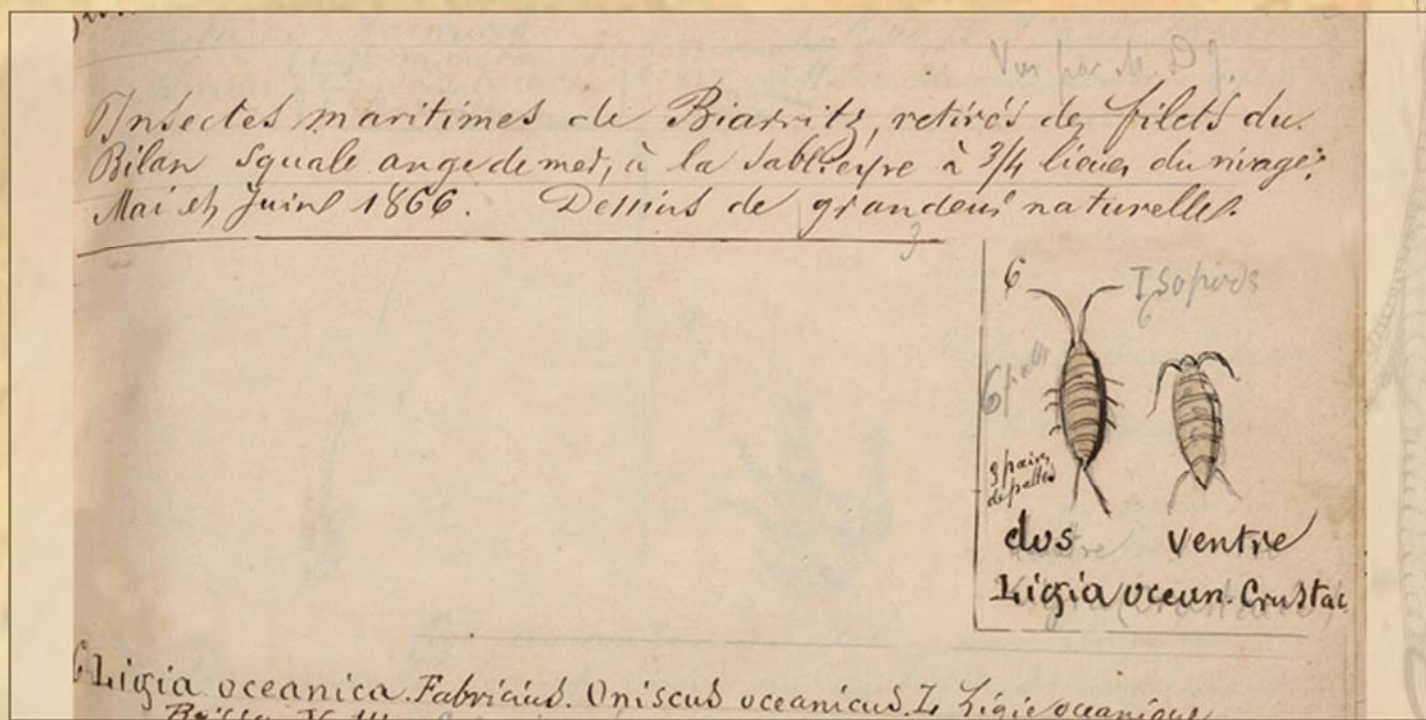 Vu par M. D
Insectes maritimes de Biarritz, retirés des filets du
Bilan squale ange de mer, à la à 3/4 lieues du rivage.
Mai et Juin 1866. Dessins de grandeur naturelle.
6 Isopods
6
9 paires
de pattes
dos ventre
Ligia ocean. Crustac
6 Ligia oceanica. Fabricius. Oniscus oceanicus. L. Ligie oceanique